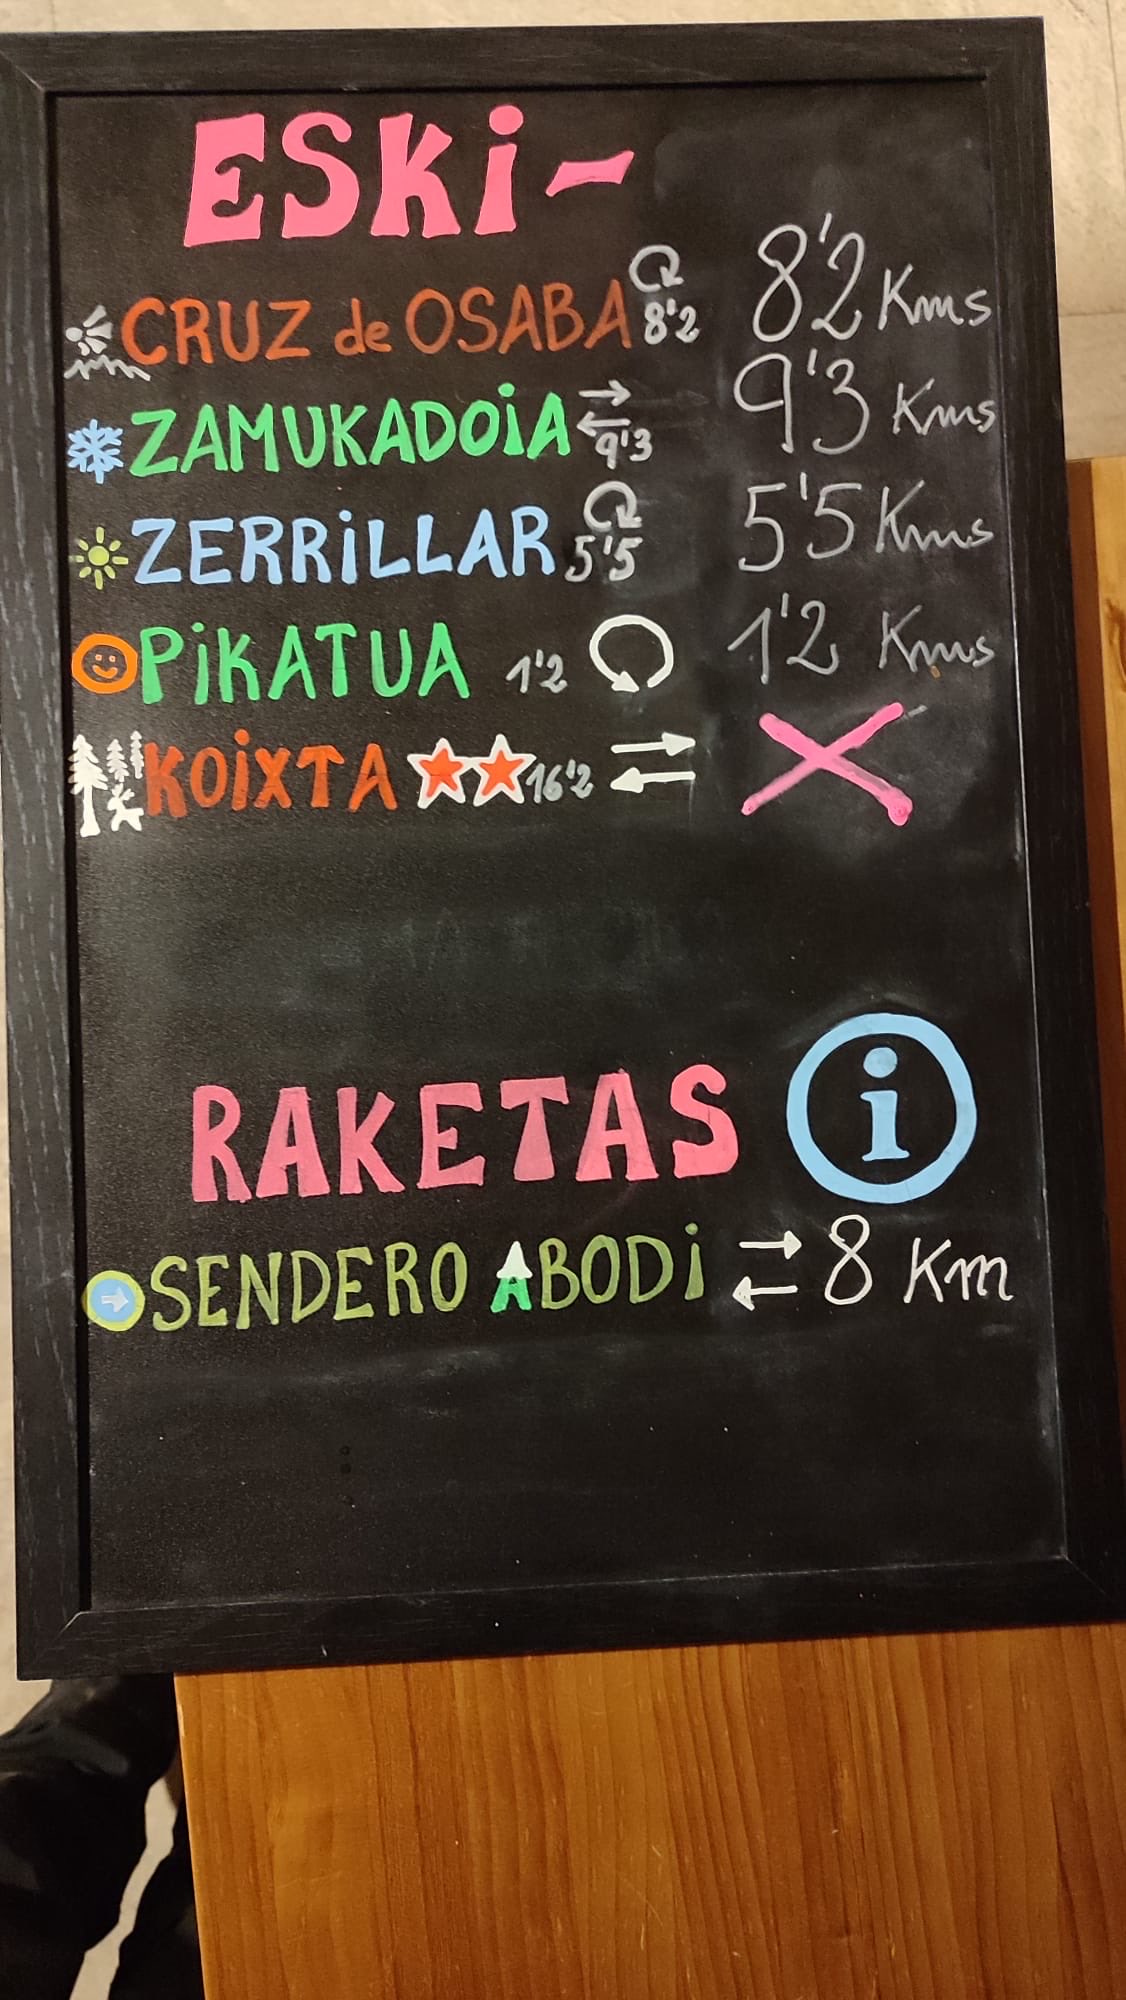 ESKi-
CRUZ de OSABA 8'2 8'2 Kms
ZAMUKADOiA 9'3 9'3 Kms
ZERRiLLAR 5'5 5'5 Kms
PiKATUA 1'2 1'2 Kms
KOiXTA 16'2
RAKETAS i
SENDERO ABODi 8 Km